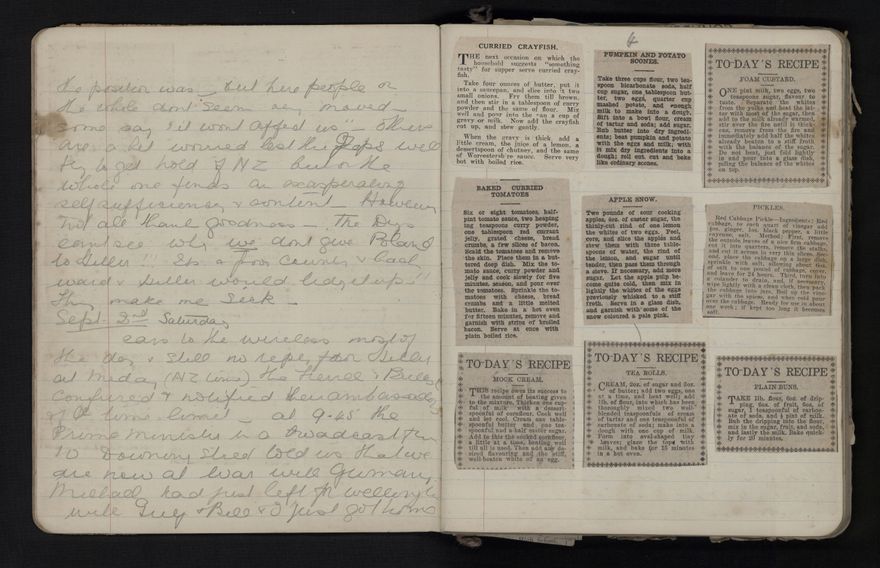 the position was – but here people on
the whole dont seem as moved –
some say "it wont affect us" – others
are a bit worried lest the Japs will
try to get hold of NZ but on the
whole one finds an exasperating
self sufficiency & content – However
not all thank goodness – The Dys
cant see why we dont give Poland
to Hitler!! Its a poor country, back
ward & Hitler would tidy it up!!
They make me sick –
Sept 2nd Saturday
ears to the wireless most of
the day & still no reply from Hitler
at midday (NZ time) the French & British
conferred & notified their ambassadors
of the time limit – at 9.45 the
Prime Minister in a broadcast from
10 Downing Street told us that we
are now at war with Germany
had just left for Wellington
with Guy & Bill & I just got home
CURRIED CRAYFISH.
THE next occasion on which the
household suggests "something
tasty" for supper serve curried cray-
fish.
Take four ounces of butter, put it
into a saucepan, and slice into it two
small onions. Fry them till brown,
and then stir in a tablespoon of curry
powder and the same of flour. Mix
well and pour into the pan a cup of
gravy or milk. Now add the crayfish
cut up, and stew gently.
When the gravy is thick add a
little cream, the juice of a lemon, a
dessertspoon of chutney, and the same
of Worcestershire sauce. Serve very
hot with boiled rice.
BAKED CURRIED
TOMATOES
Six or eight tomatoes, half-
pint tomato sauce, two heaping
teaspoons curry powder,
one tablespoon red currant
jelly, grated cheese, bread
crumbs, a few slices of bacon.
Scald the tomatoes and remove
the skin. Place them in a but-
tered deep dish. Mix the to-
mato sauce, curry powder and
jelly and cook slowly for five
minutes, season, and pour over
the tomatoes. Sprinkle the to-
matoes with cheese, bread
crumbs and a little melted
butter. Bake in a hot oven
for fifteen minutes, remove and
garnish with strips of broiled
bacon. Serve at once with
plain boiled rice.
TO-DAY'S RECIPE
MOCK CREAM.
THIS recipe owes its success to
the amount of beating given
to the mixture. Thicken one cup-
ful of milk with a dessert-
spoonful of cornflour. Cook well
and let cool. Cream one table-
spoonful butter and one tea-
spoonful and a half caster sugar.
Add to this the cooked cornflour,
a little at a time, beating well
till all is used. Then add any de-
sired flavouring and the stiff,
well-beaten white of an egg.
PUMPKIN AND POTATO
SCONES.
Take three cups flour, two tea-
spoons bicarbonate soda, half
cup sugar, one tablespoon but-
ter, two eggs, quarter cup
mashed potato, and enough
milk to make into a dough.
Sift into a bowl flour, cream
of tartar and soda; add sugar.
Rub butter into dry ingredi-
ents; beat pumpkin and potato
with the eggs and milk; with
it mix dry ingredients into a
dough; roll out, cut and bake
like ordinary scones.
APPLE SNOW.
Two pounds of sour cooking
apples, 4oz. of caster sugar, the
thinly-cut rind of one lemon
the whites of two eggs. Peel,
core, and slice the apples and
stew them with three table-
spoons of water, the rind of
the lemon, and sugar until
tender, then pass them through
a sieve. If necessary, add more
sugar. Let the apple pulp be-
come quite cold, then mix in
lightly the whites of the eggs
previously whisked to a stiff
froth. Serve in a glass dish,
and garnish with some of the
snow coloured a pale pink.
TO-DAY'S RECIPE
TEA ROLLS.
CREAM, 2oz. of sugar and 8oz.
of butter; add two eggs, one
at a time, and beat well; add
1lb. of flour, into which has been
thoroughly mixed two well-
blended teaspoonfuls of cream
of tartar and one teaspoonful of
carbonate of soda; make into a
dough with one cup of milk.
Form into oval-shaped tiny
loaves; glaze the tops with
milk, and bake for 15 minutes
in a hot oven.
TO-DAY'S RECIPE
FOAM CUSTARD.
ONE pint milk, two eggs, two
teaspoons sugar, flavour to
taste. Separate the whites
from the yolks and beat the lat-
ter with most of the sugar, then
add to the milk already warmed,
stir over the fire until it thick-
ens, remove from the fire and
immediately add half the whites,
already beaten to a stiff froth
with the balance of the sugar.
Do not beat, just fold lightly
in and pour into a glass dish,
piling the balance of the whites
on top.
PICKLES.
Red Cabbage Pickle—Ingredients: Red
cabbage, to each quart of vinegar add
ginger, 1oz. black pepper, a little
cayenne, salt. Method: First remove
the outside leaves of a nice firm cabbage,
cut it into quarters, remove the stalks,
and cut it across in very thin slices. Sec-
ond, place the cabbage on a large dish,
sprinkle with salt, allowing about
of salt to one pound of cabbage, cover,
and leave for 24 hours. Third, turn into
a colander to drain, and, if necessary,
wipe lightly with a clean cloth, then pack
the cabbage into jars. Boil up the vine-
gar with the spices, and when cold pour
over the cabbage. Ready for use in about
one week; if kept too long it becomes
soft.
TO-DAY'S RECIPE
PLAIN BUNS.
TAKE 1lb. flour, 6oz. of drip-
ping, 6oz. of fruit, 6oz. of
sugar, 1 teaspoonful of carbon-
ate of soda, and ½ pint of milk.
Rub the dripping into the flour,
mix in the sugar, fruit, and soda,
and lastly the milk. Bake quick-
ly for 20 minutes.